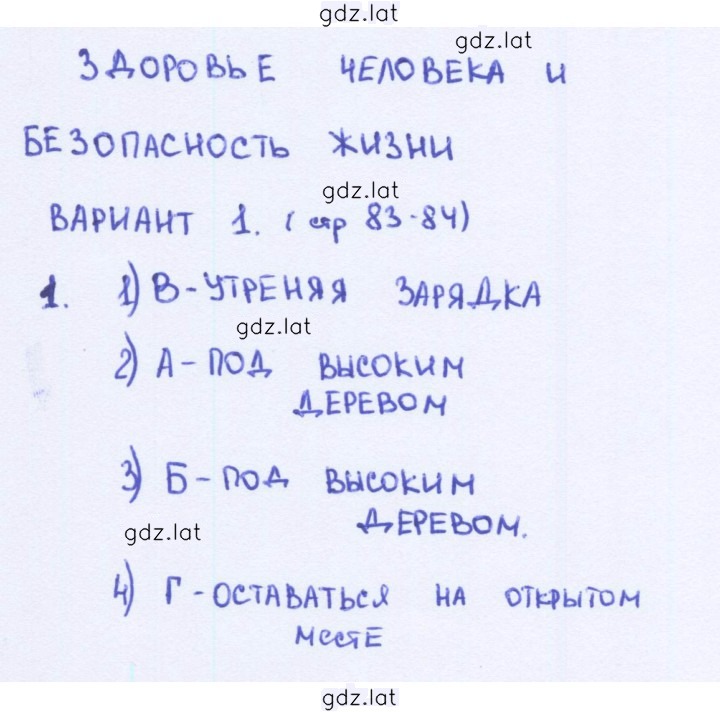 gdz.lat
gdz.lat
ЗДОРОВЬЕ ЧЕЛОВЕКА И
БЕЗОПАСНОСТЬ ЖИЗНИ
gdz.lat
ВАРИАНТ 1. (стр 83-84)
1. 1) В-УТРЕНЯЯ ЗАРЯДКА
gdz.lat
2) А-ПОД ВЫСОКИМ
ДЕРЕВОМ
3) Б-ПОД ВЫСОКИМ
ДЕРЕВОМ.
gdz.lat
4) Г-ОСТАВАТЬСЯ НА ОТКРЫТОМ
МЕСТЕ
gdz.lat